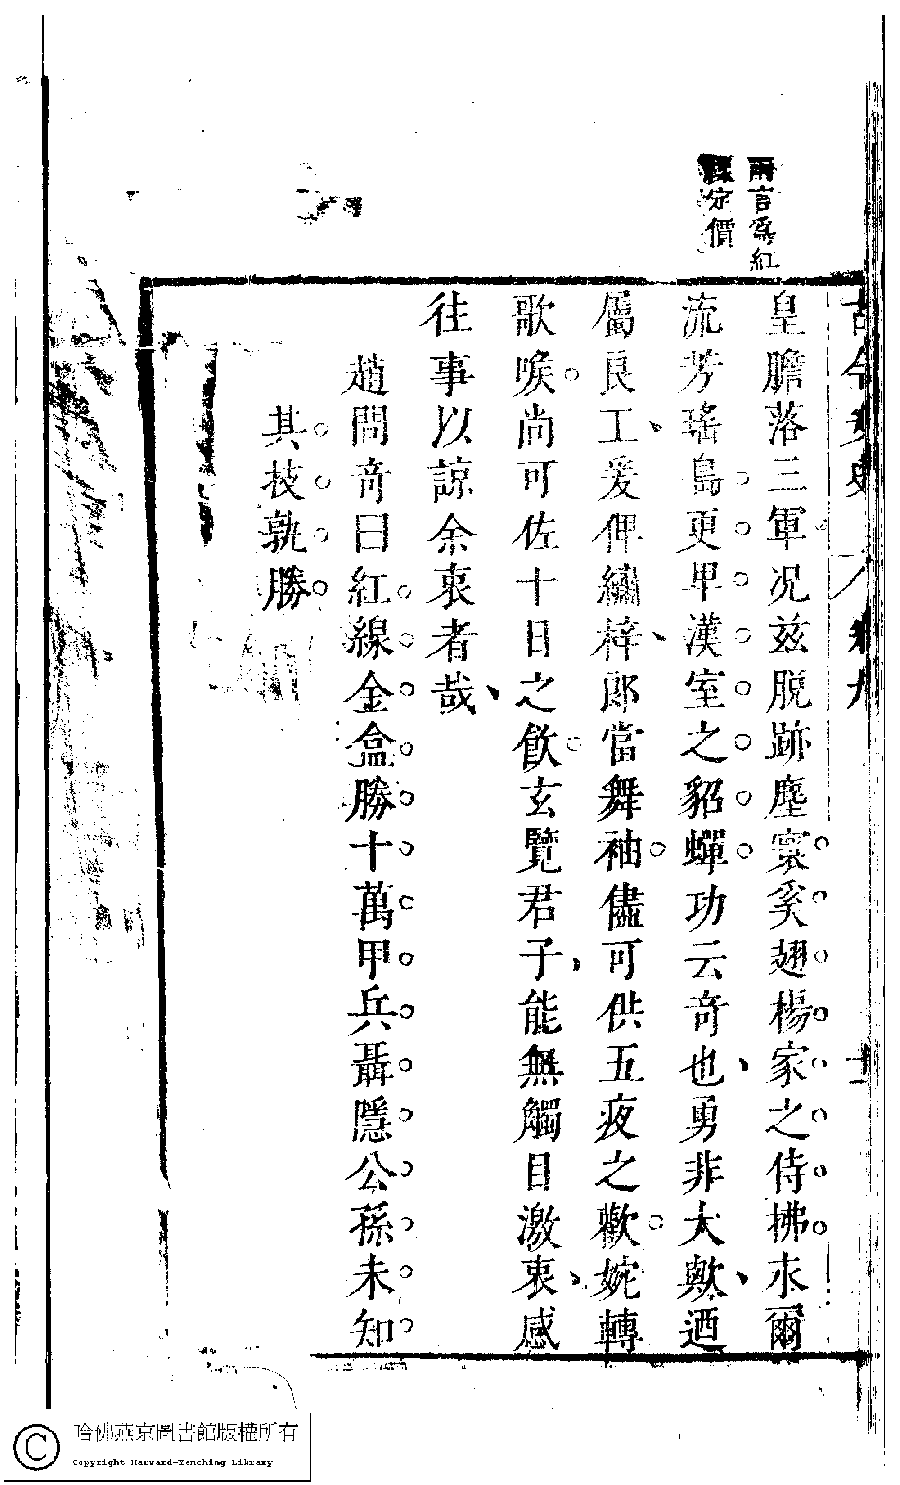 兩言爲紅
線定價
古今女史 卷九 十一
皇膽落三軍况兹脫跡塵寰奚翅楊家之侍拂木爾
流芳瑤島更甲漢室之貂蟬功云奇也勇非大歟迺
屬良工爰俾繡梓郎當舞袖儘可供五夜之歡婉轉
歌喉尚可佐十日之飲玄覽君子能無觸目激衷感
往事以諒余衷者哉
趙問奇曰紅線金盒勝十萬甲兵聶隱公孫未知
其技孰勝
哈佛燕京圖書館版權所有
Copyright Harvard-Yenching Library